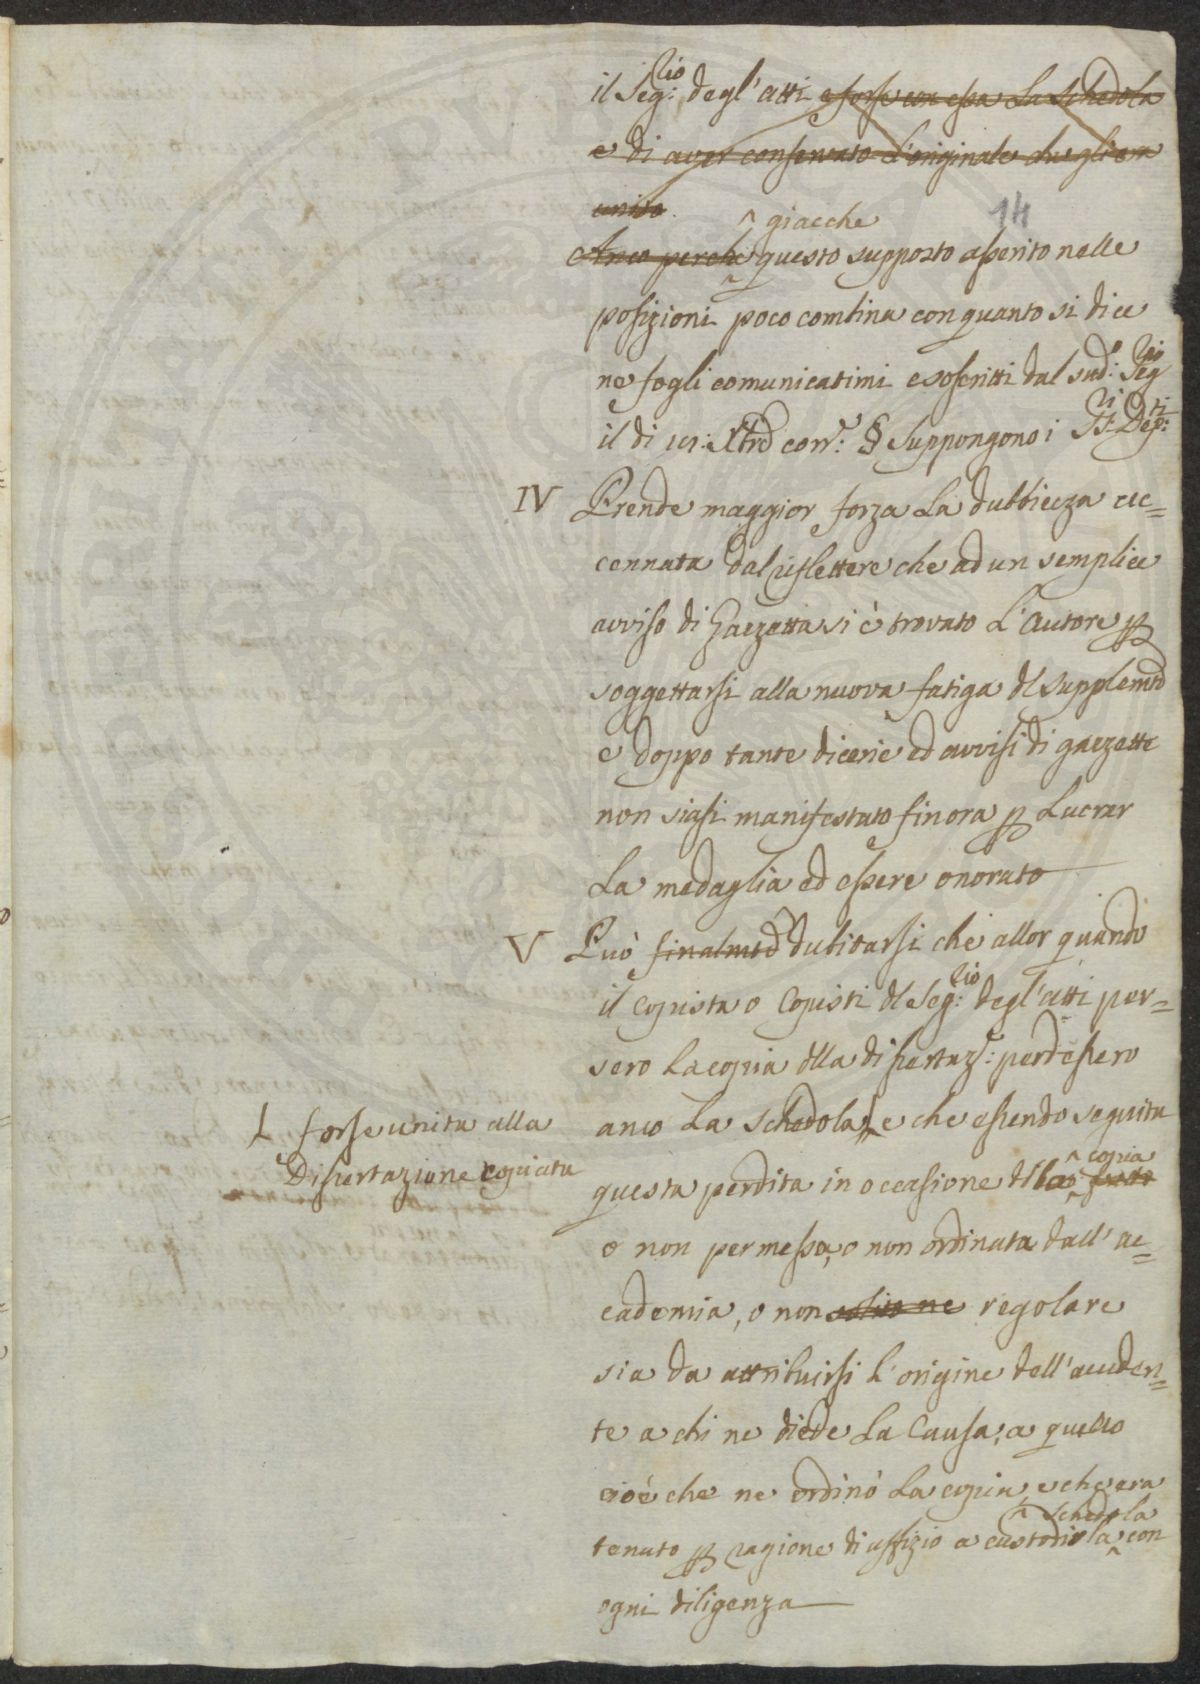 il Seg:rio degl'atti e forse con essa La Schedola
e di aver conservato L'originale che gli era
unito.
14
Anco perche ^ giacche questo supposto asserito nelle
posizioni poco combina con quanto si dice
ne fogli comunicatimi e soscritti dal sud:o Seg:rio
il di corr:e § Suppongono i SS:ri Dep:ti
IV Prende maggior forza La dubbiezza ac=
cennata dal riflettere che ad un semplice
avviso di Gazzetta si è trovato L'Autore p
soggettarsi alla nuova fatiga dl supplemto
e doppo tante dicerie ed avvisi di gazzette
non siasi manifestato finora p Lucrar
La medaglia ed essere onorato
V Può finalmte dubitarsi che allor quando
il Copista o Copisti dl Seg:rio degl'atti per=
sero La copia dlla dissertaz:e perdessero
anco La Schedola L e che essendo seguita
L forse unita alla
Dissertazione copiata
questa perdita in occasione dlla ^ copia
o non permessa, o non ordinata dall'ac=
cademia, o non solito ne regolare
sia da attribuirsi L'origine dell'acciden=
te a chi ne diede La Causa, a quello
cioè che ne ordinò La copia e che era
tenuto p ragione di uffizio a custodir la ^ schedola con
ogni diligenza